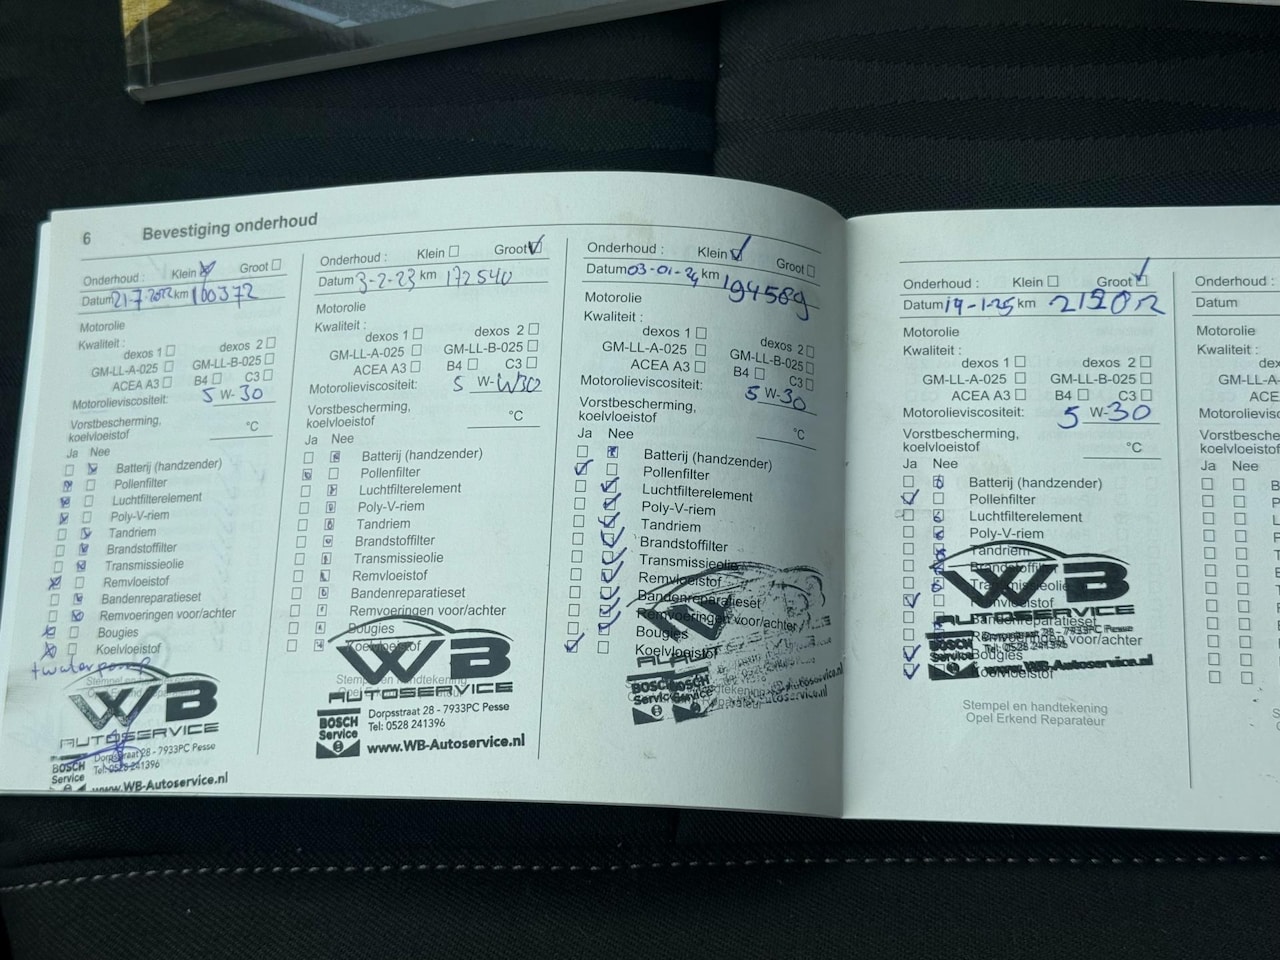 6 Bevestiging onderhoud
Onderhoud : Klein Groot
Datum 21-7-2022 km 160372
Motorolie
Kwaliteit :
dexos 1 dexos 2
GM-LL-A-025 GM-LL-B-025
ACEA A3 B4 C3
Motorolieviscositeit: 5 W- 30
Vorstbescherming,
koelvloeistof °C
Ja Nee
Batterij (handzender)
Pollenfilter
Luchtfilterelement
Poly-V-riem
Tandriem
Brandstoffilter
Transmissieolie
Remvloeistof
Bandenreparatieset
Remvoeringen voor/achter
Bougies
Koelvloeistof
+waterpomp
WB
AUTOSERVICE
BOSCH
Service
Dorpsstraat 28 - 7933PC Pesse
Tel: 0528 241396
www.WB-Autoservice.nl
Onderhoud : Klein Groot
Datum 3-2-23 km 172540
Motorolie
Kwaliteit :
dexos 1 dexos 2
GM-LL-A-025 GM-LL-B-025
ACEA A3 B4 C3
Motorolieviscositeit: 5 W- W30
Vorstbescherming,
koelvloeistof °C
Ja Nee
Batterij (handzender)
Pollenfilter
Luchtfilterelement
Poly-V-riem
Tandriem
Brandstoffilter
Transmissieolie
Remvloeistof
Bandenreparatieset
Remvoeringen voor/achter
Bougies
Koelvloeistof
WB
AUTOSERVICE
BOSCH
Service
Dorpsstraat 28 - 7933PC Pesse
Tel: 0528 241396
www.WB-Autoservice.nl
Onderhoud : Klein Groot
Datum 03-01-24 km 194589
Motorolie
Kwaliteit :
dexos 1 dexos 2
GM-LL-A-025 GM-LL-B-025
ACEA A3 B4 C3
Motorolieviscositeit: 5 W- 30
Vorstbescherming,
koelvloeistof °C
Ja Nee
Batterij (handzender)
Pollenfilter
Luchtfilterelement
Poly-V-riem
Tandriem
Brandstoffilter
Transmissieolie
Remvloeistof
Bandenreparatieset
Remvoeringen voor/achter
Bougies
Koelvloeistof
BOSCH BOSCH
Service Service
Onderhoud : Klein Groot
Datum 14-1-25 km
Motorolie
Kwaliteit :
dexos 1 dexos 2
GM-LL-A-025 GM-LL-B-025
ACEA A3 B4 C3
Motorolieviscositeit: 5 W- 30
Vorstbescherming,
koelvloeistof °C
Ja Nee
Batterij (handzender)
Pollenfilter
Luchtfilterelement
Poly-V-riem
Tandriem
Brandstoffilter
Transmissieolie
Remvloeistof
Bandenreparatieset
Remvoeringen voor/achter
Bougies
Koelvloeistof
WB
AUTOSERVICE
BOSCH
Service
Dorpsstraat 28 - 7933PC Pesse
Tel: 0528 241396
www.WB-Autoservice.nl
Stempel en handtekening
Opel Erkend Reparateur
Onderhoud :
Datum
Motorolie
Kwaliteit :
GM-LL-A
ACE
Motorolieviscositeit
Vorstbescherming
koelvloeistof
Ja Nee